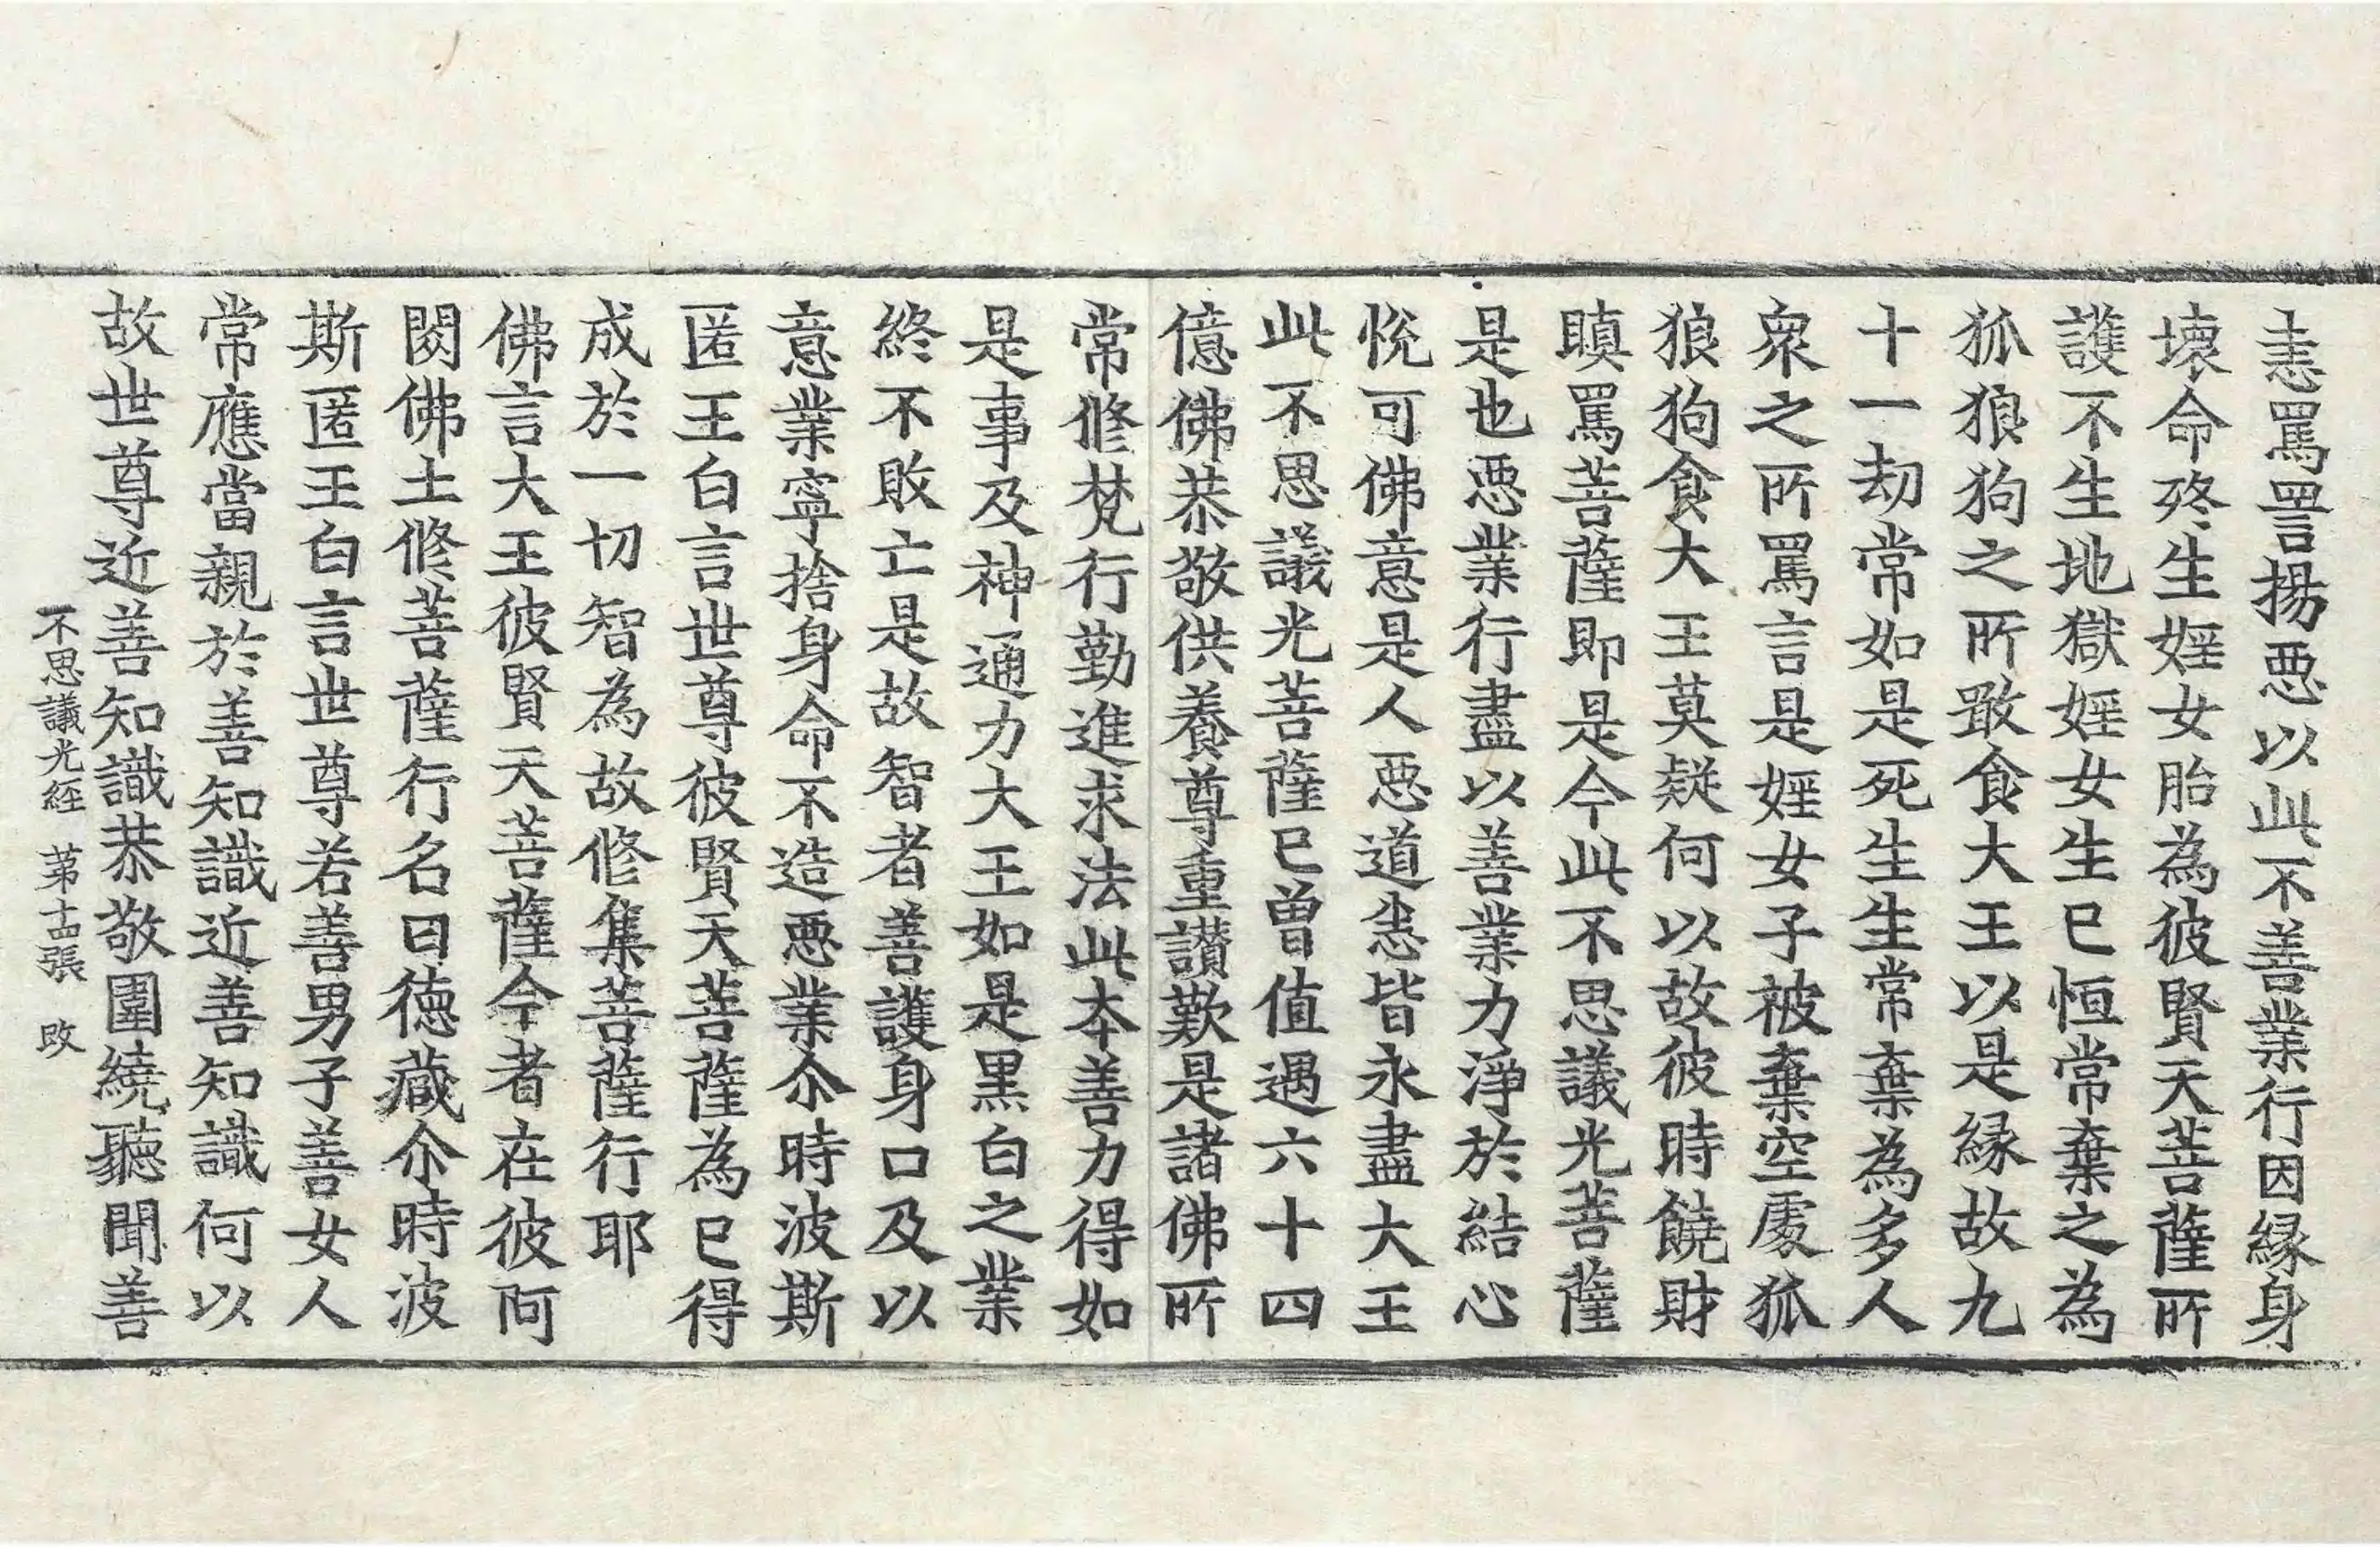 恚罵詈揚惡以此不善業行因緣身
壞命終生婬女胎為彼賢天菩薩所
護不生地獄婬女生已恒常棄之為
狐狼狗之所敢食大王以是緣故九
十一劫常如是死生生常棄為多人
衆之所罵言是婬女子被棄空處狐
狼狗食大王莫疑何以故彼時饒財
瞋罵菩薩即是今此不思議光菩薩
是也惡業行盡以善業力淨於結心
悅可佛意是人惡道悉皆永盡大王
此不思議光菩薩已曾值遇六十四
億佛恭敬供養尊重讃歎是諸佛所
常修梵行勤進求法此本善力得如
是事及神通力大王如是黒白之業
終不敗亡是故智者善護身口及以
意業寧捨身命不造惡業尒時波斯
匿王白言世尊彼賢天菩薩為已得
成於一切智為故修集菩薩行耶
佛言大王彼賢天菩薩今者在彼阿
閦佛土修菩薩行名曰德藏尒時波
斯匿王白言世尊若善男子善女人
常應當親於善知識近善知識何以
故世尊近善知識恭敬圍繞聽聞善
不思議光経 苐十四張 改